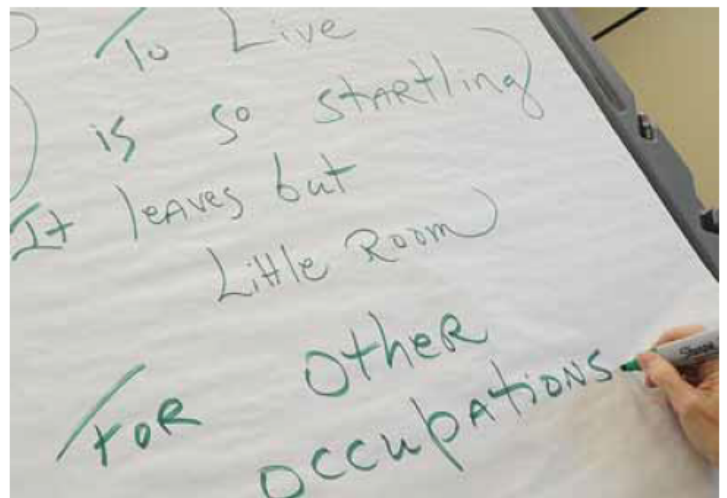 To Live
is so startling
It leaves but
Little Room
For Other
Occupations
Sharpie